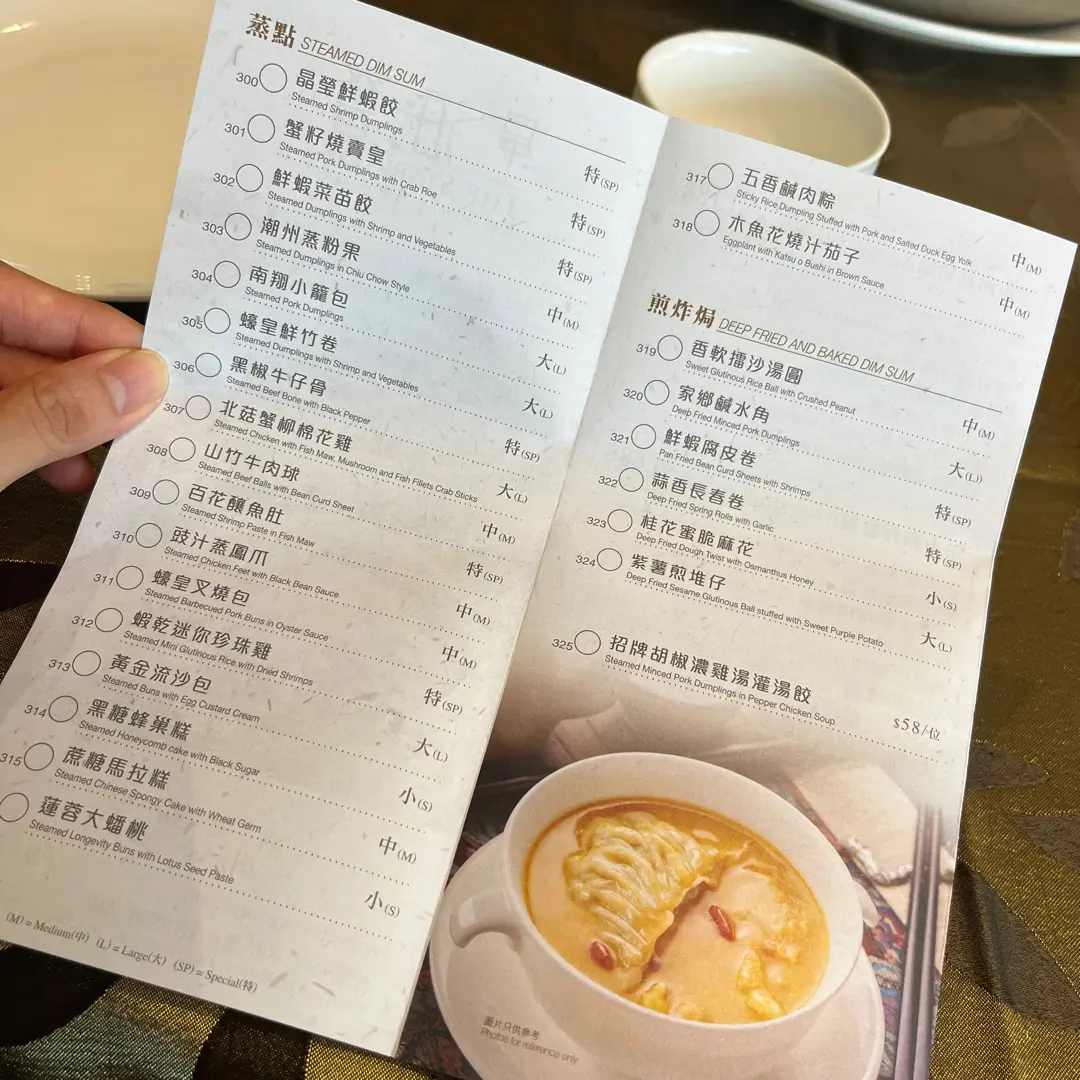 蒸點 STEAMED DIM SUM
300 晶瑩鮮蝦餃 特(SP)
Steamed Shrimp Dumplings
301 蟹籽燒賣皇 特(SP)
Steamed Pork Dumplings with Crab Roe
302 鮮蝦菜苗餃 特(SP)
Steamed Dumplings with Shrimp and Vegetables
303 潮州蒸粉果 中(M)
Steamed Dumplings in Chiu Chow Style
304 南翔小籠包 大(L)
Steamed Pork Dumplings
305 蠔皇鮮竹卷 大(L)
Steamed Dumplings with Shrimp and Vegetables
306 黑椒牛仔骨 特(SP)
Steamed Beef Bone with Black Pepper
307 北菇蟹柳棉花雞 大(L)
Steamed Chicken with Fish Maw, Mushroom and Fish Fillets Crab Sticks
308 山竹牛肉球 中(M)
Steamed Beef Balls with Bean Curd Sheet
309 百花釀魚肚 特(SP)
Steamed Shrimp Paste in Fish Maw
310 豉汁蒸鳳爪 中(M)
Steamed Chicken Feet with Black Bean Sauce
311 蠔皇叉燒包 中(M)
Steamed Barbecued Pork Buns in Oyster Sauce
312 蝦乾迷你珍珠雞 特(SP)
Steamed Mini Glutinous Rice with Dried Shrimps
313 黃金流沙包 大(L)
Steamed Buns with Egg Custard Cream
314 黑糖蜂巢糕 小(S)
Steamed Honeycomb cake with Black Sugar
315 蔗糖馬拉糕 中(M)
Steamed Chinese Spongy Cake with Wheat Germ
蓮蓉大蟠桃 小(S)
Steamed Longevity Buns with Lotus Seed Paste
(M) = Medium(中) (L) = Large(大) (SP) = Special(特)
317 五香鹹肉粽 中(M)
Sticky Rice Dumpling Stuffed with Pork and Salted Duck Egg Yolk
318 木魚花燒汁茄子 中(M)
Eggplant with Katsu o Bushi in Brown Sauce
煎炸焗 DEEP FRIED AND BAKED DIM SUM
319 香軟擂沙湯圓 中(M)
Sweet Glutinous Rice Ball with Crushed Peanut
320 家鄉鹹水角 大(L))
Deep Fried Minced Pork Dumplings
321 鮮蝦腐皮卷 特(SP)
Pan Fried Bean Curd Sheets with Shrimps
322 蒜香長春卷 特(SP)
Deep Fried Spring Rolls with Garlic
323 桂花蜜脆麻花 小(S)
Deep Fried Dough Twist with Osmanthus Honey
324 紫薯煎堆仔 大(L)
Deep Fried Sesame Glutinous Ball stuffed with Sweet Purple Potato
325 招牌胡椒濃雞湯灌湯餃 $58/位
Steamed Minced Pork Dumplings in Pepper Chicken Soup
圖片只供參考
Photos for reference only